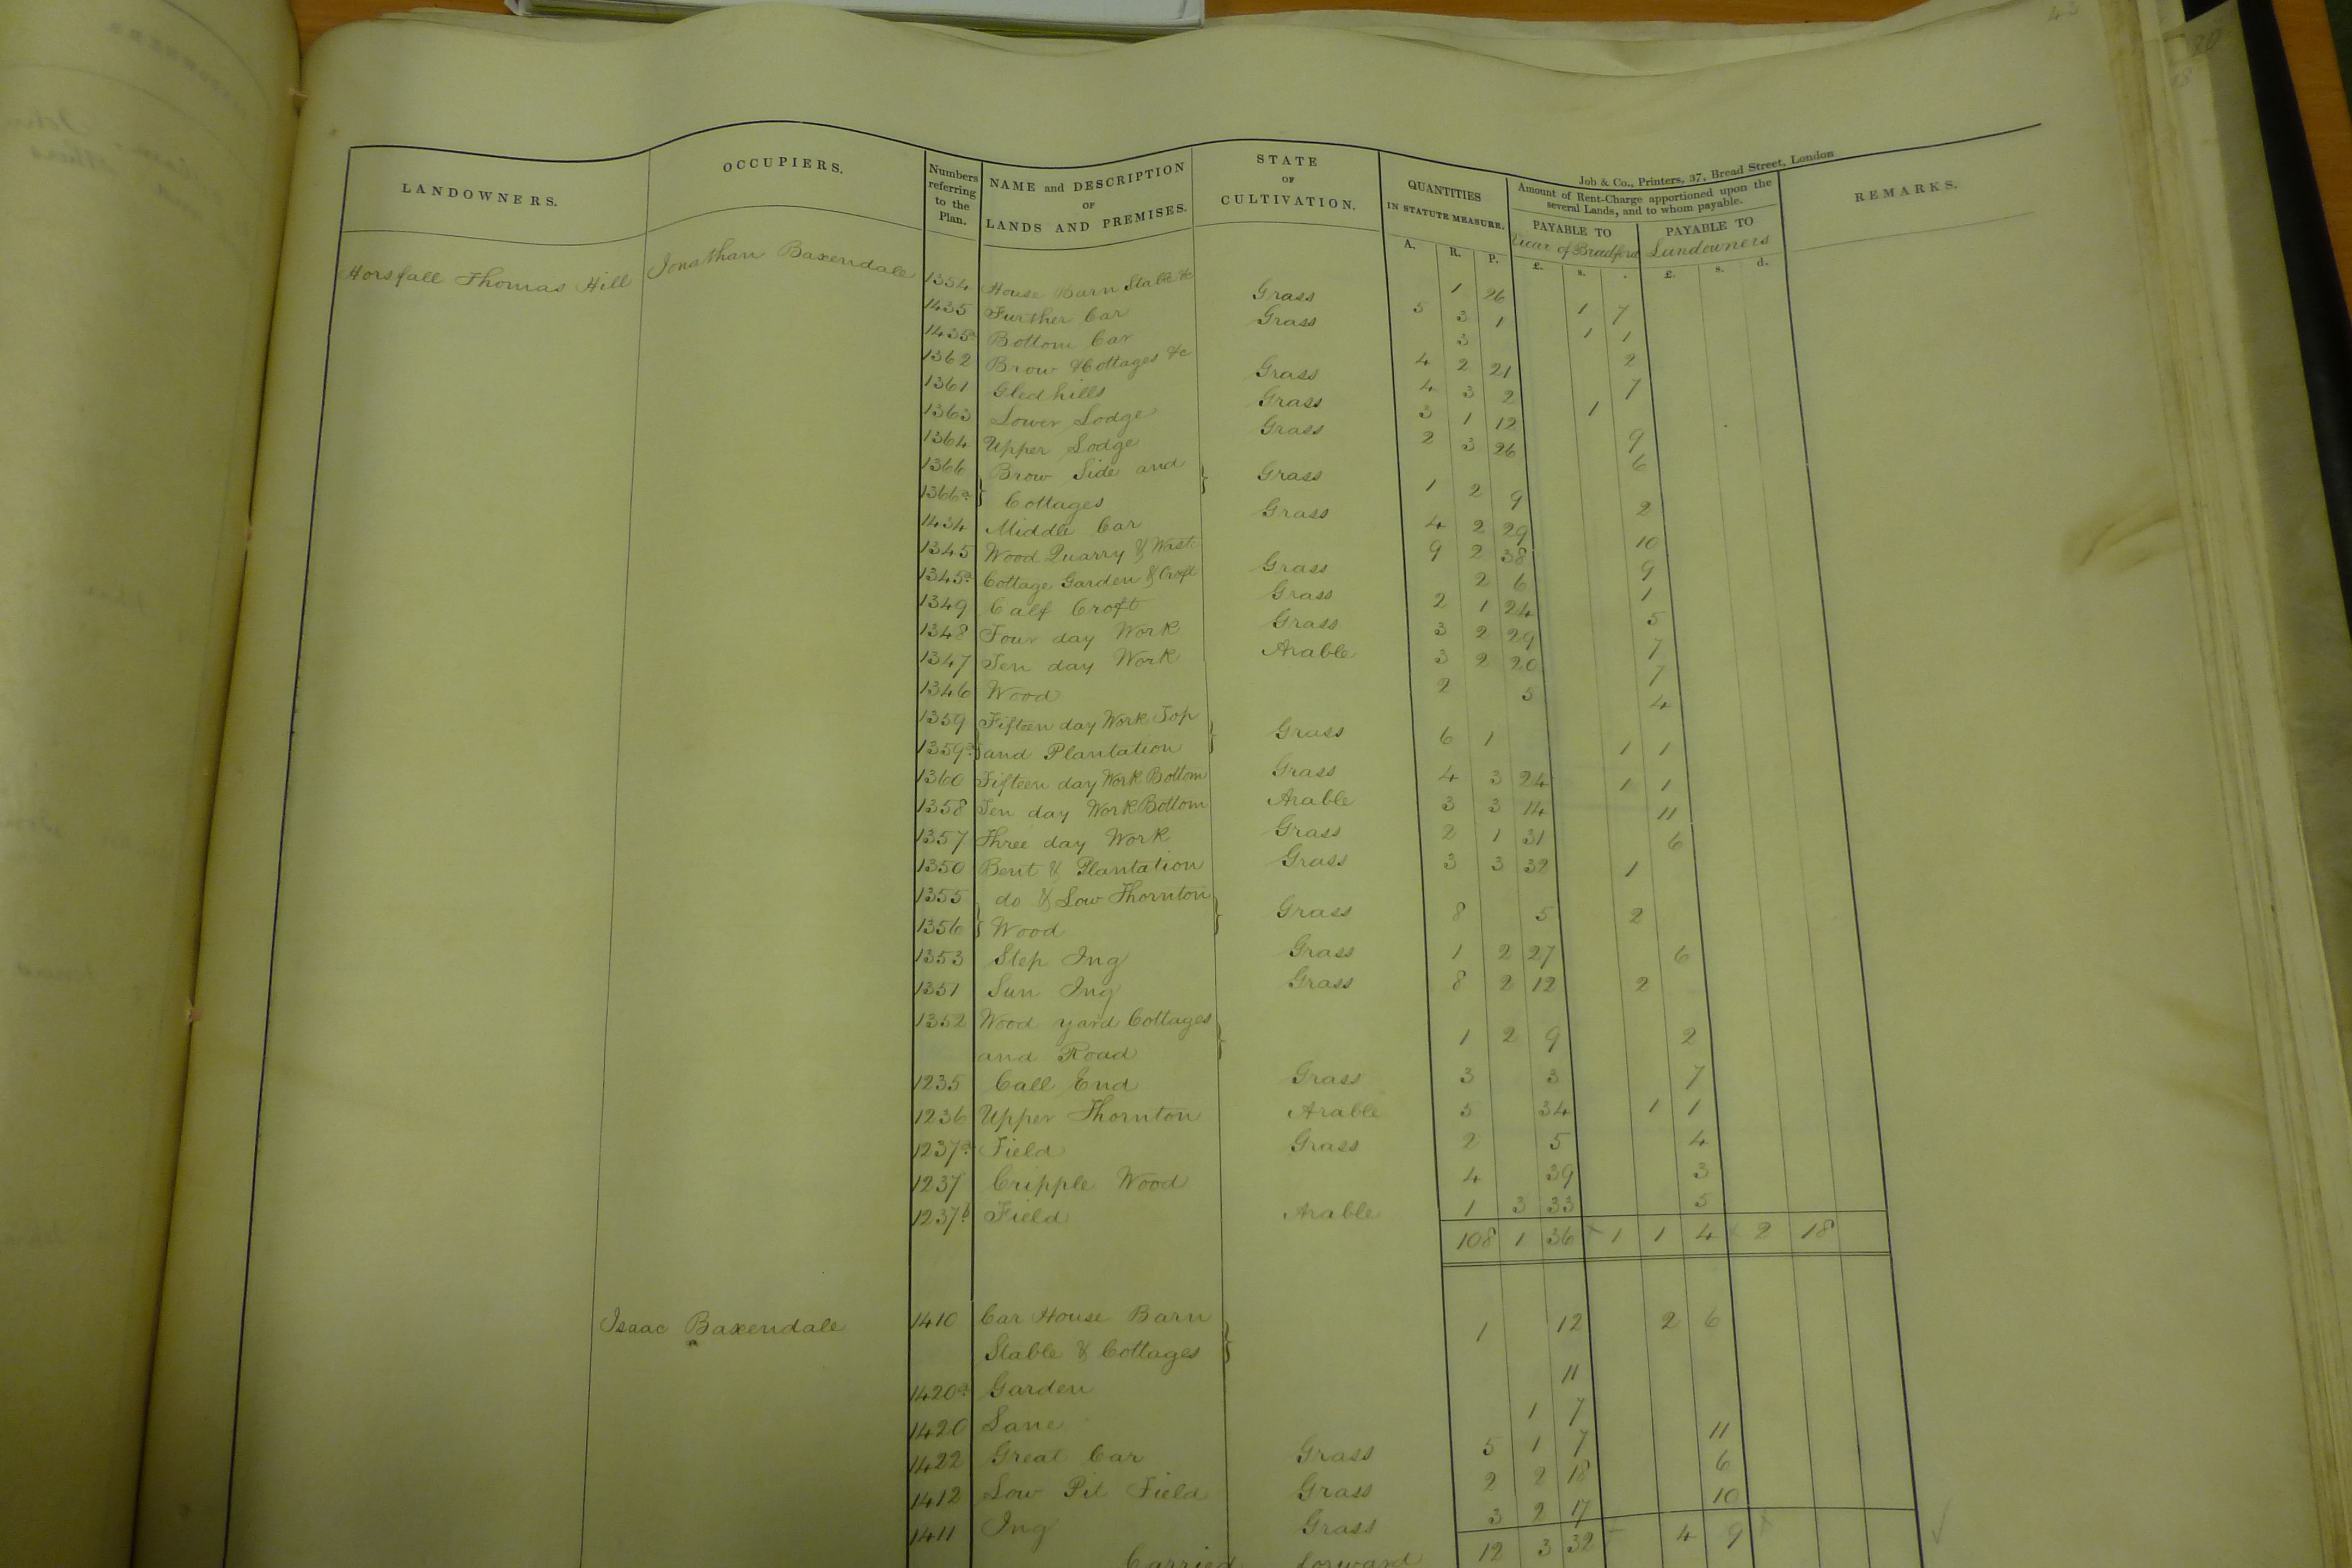 Job & Co., Printers, 37, Bread Street, London
LANDOWNERS. OCCUPIERS. Numbers referring to the Plan. NAME and DESCRIPTION OF LANDS AND PREMISES. STATE OF CULTIVATION. QUANTITIES IN STATUTE MEASURE. Amount of Rent-Charge apportioned upon the several Lands, and to whom payable. REMARKS.
PAYABLE TO Vicar of Bradford PAYABLE TO Landowners
A. R. P. £. s. . £. s. d.
Horsfall Thomas Hill Jonathan Baxendale 1354 House Barn Stable &c 1 26
1435 Further Car Grass 5 3 1 1 7
1435a Bottom Car Grass 3 1 1
1362 Brow & Cottages &c 4 2 21 2
1361 Gledhills Grass 4 3 2 7
1363 Lower Lodge Grass 3 1 12 1
1364 Upper Lodge Grass 2 3 26 9
1366 Brow Side and 6
1366a Cottages Grass 1 2 9 2
1434 Middle Car Grass 4 2 29 10
1345 Wood Quarry & Wast 9 2 38 9
1345a Cottage Garden & Croft Grass 2 6 1
1349 Calf Croft Grass 2 1 24 5
1348 Four day Work Grass 3 2 29 7
1347 Ten day Work Arable 3 2 20 7
1346 Wood 2 5 4
1359 Fifteen day Work Top
1359a and Plantation Grass 6 1 1 1
1360 Fifteen day Work Bottom Grass 4 3 24 1 1
1358 Ten day Work Bottom Arable 3 3 14 11
1357 Three day Work Grass 2 1 31 6
1350 Bent & Plantation Grass 3 3 32 1
1355 do & Low Thornton
1356 Wood Grass 8 5 2
1353 Step Ing Grass 1 2 27 6
1351 Sun Ing Grass 8 2 12 2
1352 Wood yard Cottages
and Road 1 2 9 2
1235 Call End Grass 3 3 7
1236 Upper Thornton Arable 5 34 1 1
1237a Field Grass 2 5 4
1237 Cripple Wood 4 39 3
1237b Field Arable 1 3 33 5
108 1 36 1 1 4 2 18
Isaac Baxendale 1410 Car House Barn
Stable & Cottages 1 12 2 6
1420a Garden 11
1420 Lane 1 7
1422 Great Car Grass 5 1 7 11
1412 Low Pit Field Grass 2 2 18 6
1411 Ing Grass 3 2 17 10
Carried forward 12 3 32 4 9